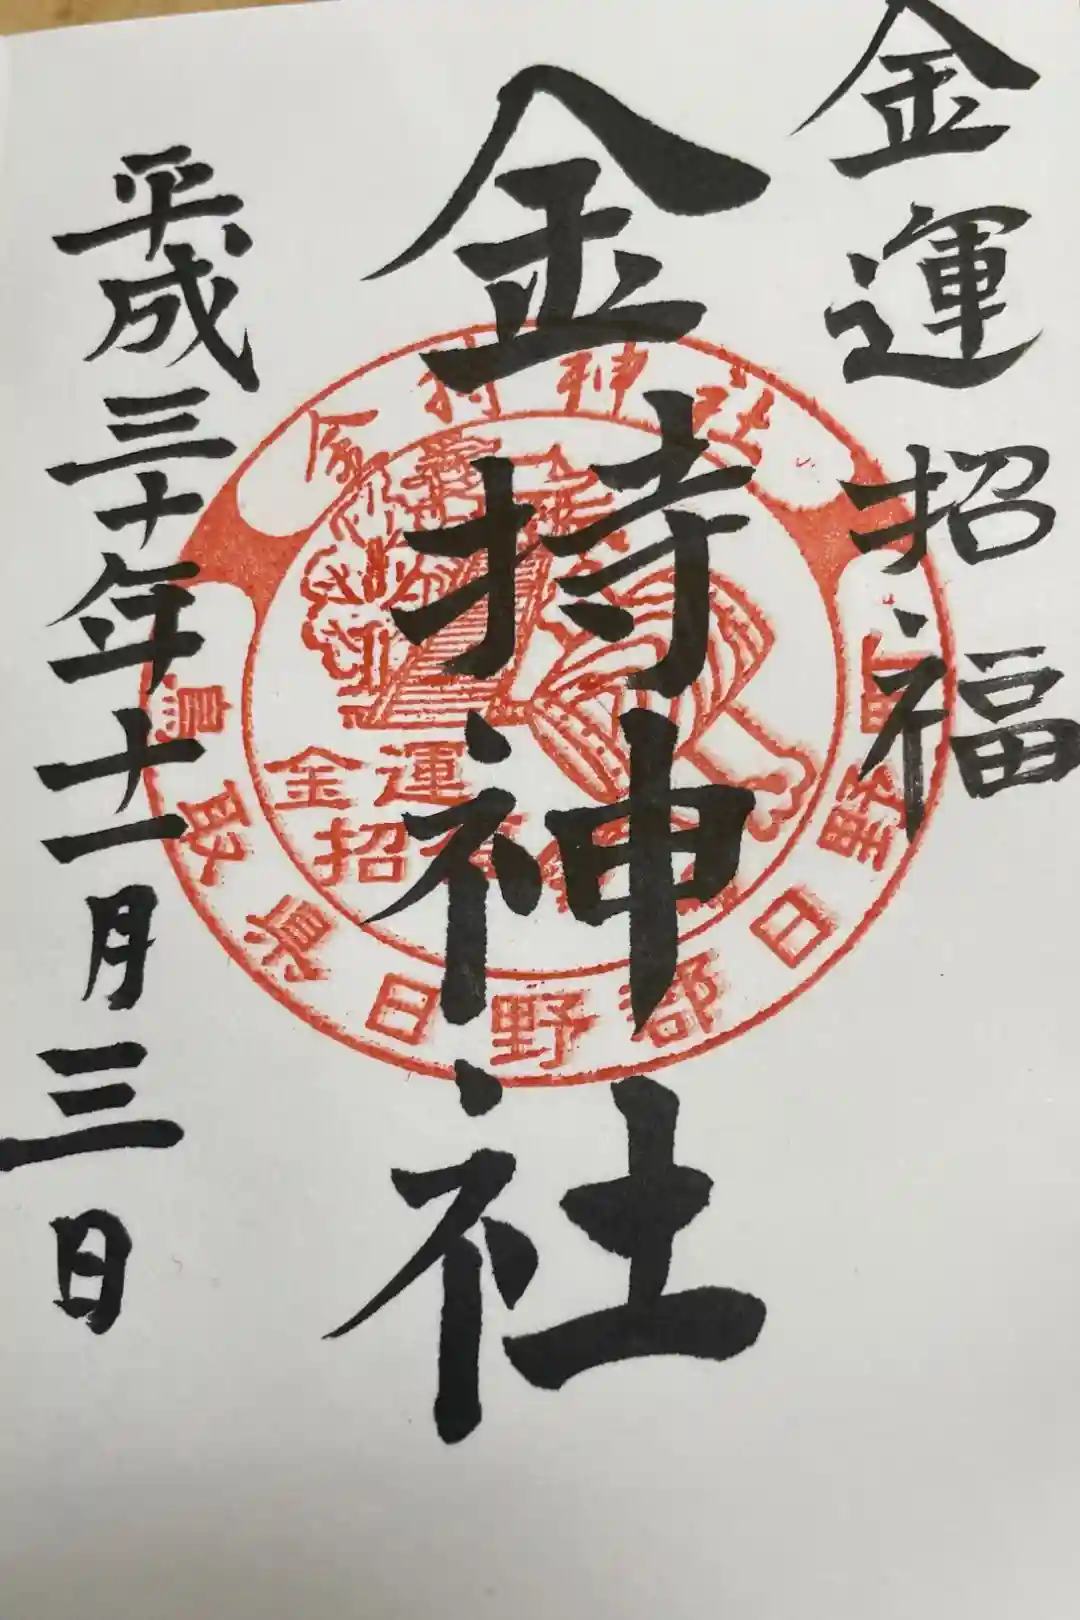 金運招福
金持神社
平成三十年十一月三日
金持神社
鳥取県日野郡日野町
金運
招